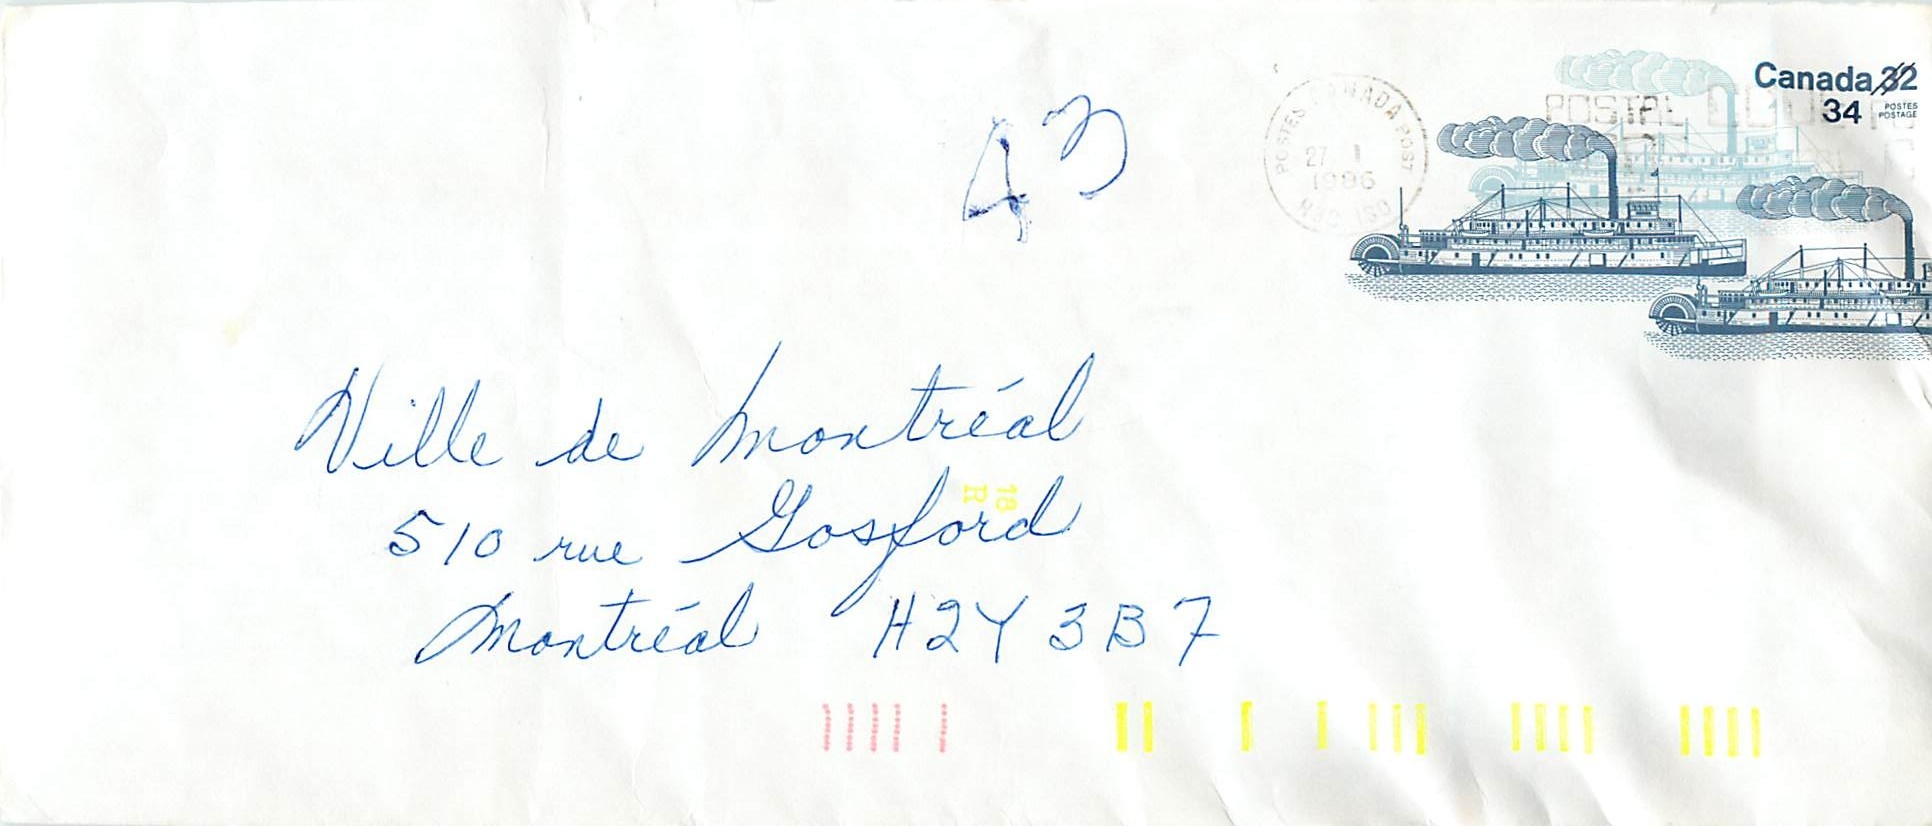 Canada 32
34 POSTES
POSTAGE
POSTES CANADA POST
27 I
1986
POSTAL CODE
43
Ville de Montréal
510 rue Gosford
Montréal H2Y 3B7
18
R